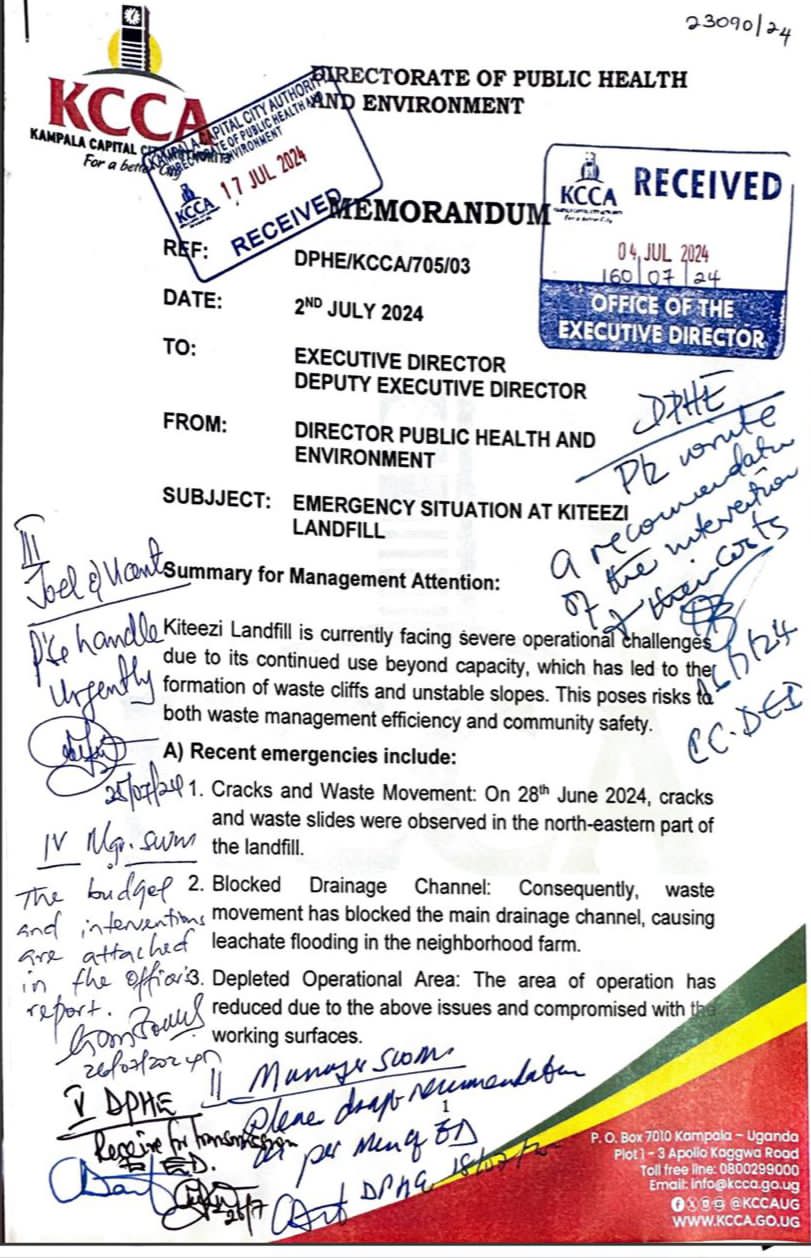 23090/24
KCCA
KAMPALA CAPITAL
For a better City
DIRECTORATE OF PUBLIC HEALTH
AND ENVIRONMENT
KAMPALA CAPITAL CITY AUTHORITY
DIRECTORATE OF PUBLIC HEALTH AND
ENVIRONMENT
KCCA
17 JUL 2024
RECEIVED
KCCA
RECEIVED
For a better City
04 JUL 2024
160/07/24
OFFICE OF THE
EXECUTIVE DIRECTOR
MEMORANDUM
REF: DPHE/KCCA/705/03
DATE: 2ND JULY 2024
TO: EXECUTIVE DIRECTOR
DEPUTY EXECUTIVE DIRECTOR
FROM: DIRECTOR PUBLIC HEALTH AND
ENVIRONMENT
SUBJJECT: EMERGENCY SITUATION AT KITEEZI
LANDFILL
DPHE
Plz write
a recommendation
of the intervention
& their costs
16/7/24
CC. DED
III
Joel &
P'se handle
Urgently
25/07/24
Summary for Management Attention:
Kiteezi Landfill is currently facing severe operational challenges
due to its continued use beyond capacity, which has led to the
formation of waste cliffs and unstable slopes. This poses risks to
both waste management efficiency and community safety.
A) Recent emergencies include:
1. Cracks and Waste Movement: On 28th June 2024, cracks
and waste slides were observed in the north-eastern part of
the landfill.
2. Blocked Drainage Channel: Consequently, waste
movement has blocked the main drainage channel, causing
leachate flooding in the neighborhood farm.
3. Depleted Operational Area: The area of operation has
reduced due to the above issues and compromised with the
working surfaces.
IV Mgr. SWM
The budget
and interventions
are attached
in the officer's
report.
26/07/2024
II Manager SWM
Please draft recommendation
as per Memo of ED
DPHE 18/07/
V DPHE
Receive for transmission
to ED.
26/7
1
P. O. Box 7010 Kampala – Uganda
Plot 1 - 3 Apollo Kaggwa Road
Toll free line: 0800299000
Email: info@kcca.go.ug
@KCCAUG
WWW.KCCA.GO.UG